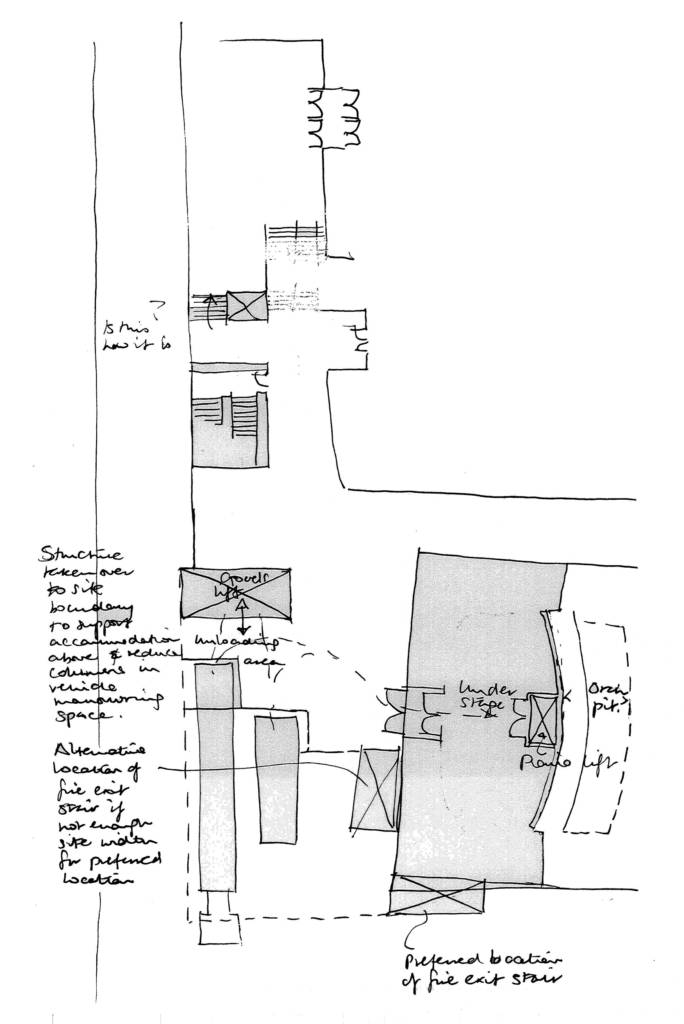 ?
Is this
how it is
Structure
taken over
to site
boundary
to support
accommodation
above & reduce
columns in
vehicle
manouvring
space.
Goods
lift
Unloading
area
Under
Stage
Orch
pit.
Piano lift
Alternative
location of
fire exit
stair if
not enough
site width
for preferred
location
Preferred location
of fire exit stair